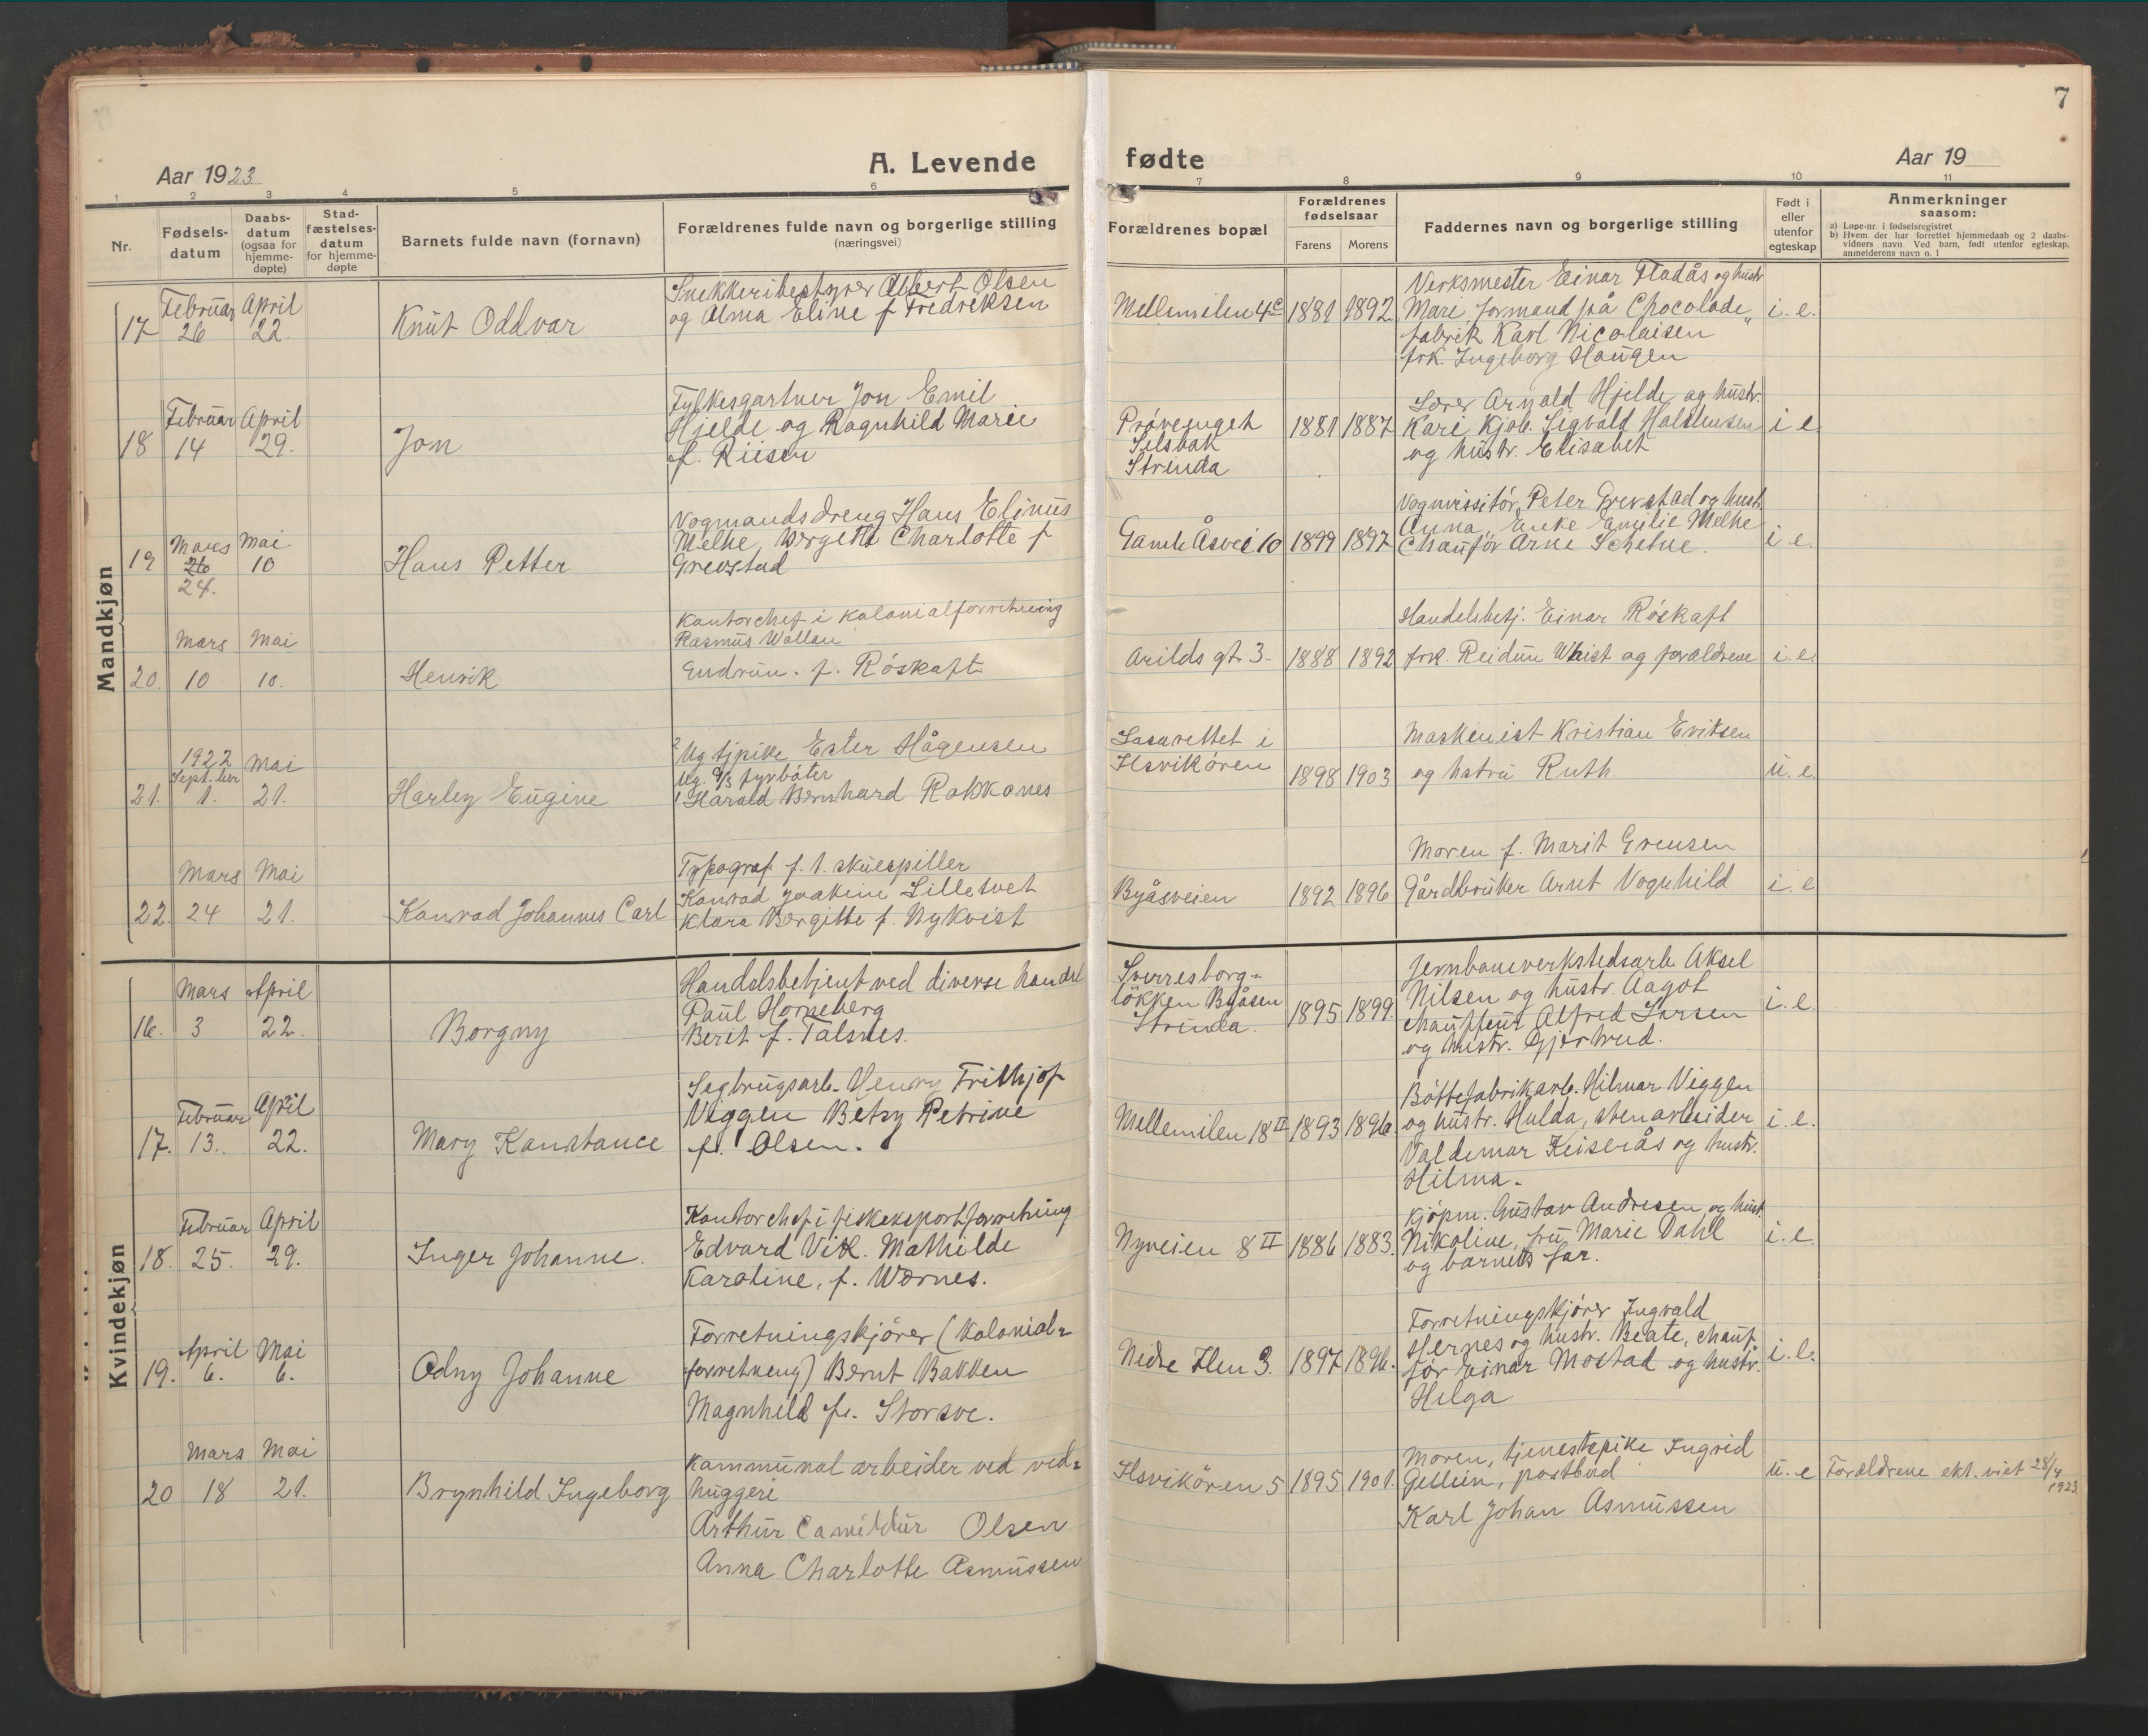 7
Aar 1923
A. Levende
fødte
Aar 19
1 2 3 4 5 6 7 8 9 10 11
Nr.
Fødsels-
datum
Daabs-
datum
(ogsaa for
hjemme-
døpte)
Stad-
fæstelses-
datum
for hjemme-
døpte
Barnets fulde navn (fornavn)
Forældrenes fulde navn og borgerlige stilling
(næringsvei)
Forældrenes bopæl
Forældrenes
fødselsaar
Farens Morens
Faddernes navn og borgerlige stilling
Født i
eller
utenfor
egteskap
Anmerkninger
saasom:
a) Løpe-nr. i fødselsregistret
b) Hvem der har forrettet hjemmedaab og 2 daabs-
vidners navn. Ved barn, født utenfor egteskap,
anmelderens navn o. l
Mandkjøn
17 Februar 26 April 22.
Knut Oddvar
Snekkeribestyrer Albert Olsen
og Alma Eline f Fredriksen
Mellemilen 4c 1881 1892
Verksmester Einar Fladås og hustr
Mari, formand på Chocolade„
fabrik Karl Nicolaisen
frk. Ingeborg Haugen
i. e.
18 Februar 14 April 29.
Jon
Fylkesgartner Jon Emil
Hjelde og Ragnhild Marie
f. Riiser
Prøvenget
Selsbak
Strinda
1881 1887
Lærer Arnold Hjelde og hustr.
Kari Kjøb. Sigvald Halstensen
og hustr. Elisabet
i e
19 Mars 26 24. Mai 10
Hans Petter
Vogmandsdreng Hans Elinus
Melhe, Bergitte Charlotte f
Grevstad
Gamle Åsvei 10 1899 1897
Vognvissitør Peter Grevstad og hustr
Anna, Enke Emilie Melhe
Chaufør Arne Schetne.
i e.
20. Mars 10 Mai 10.
Henrik
Kontorchef i kolonialforretning
Rasmus Wollan
Gudrun. f. Röskaft
Arilds gt. 3. 1888 1892
Handelsbetj. Einar Röskaft
frk. Reidun Wist og forældrene
i. e.
21. 1922 Sept.ber 1. Mai 21.
Harley Eugine
2 Ug tjpike Ester Hågensen
Ug. fyrbøter
1 Harald Bernhard Rokkones
Lasarettet i
Ilsvikøren
1898 1903
Maskinist Kristian Eriksen
og hstru Ruth.
u. e.
22. Mars 24 Mai 21.
Konrad Johannes Carl
Typograf f. t. skuespiller
Konrad Joakim Lillesvet
Klara Bergitte f. Nykvist
Byåsveien 1892 1896
Moren f. Marit Grensen
Gårdbruker Arnt Vognhild
i. e
Kvindekjøn
16. Mars 3 April 22.
Borgny
Handelsbetjent ved diverse handel
Paul Horneberg
Berit f. Talsnes.
Sverresborg-
løkken Byåsen
Strinda.
1895 1899.
Jernbaneverkstedsarb. Aksel
Nilsen og hustr. Aagot
chauffeur Alfred Larsen
og hustr. Gjertrud.
i. e.
17. Februar 13. April 22.
Mary Konstance
Sagbrugsarb. Henry Frithjof
Viggen Betsy Petrine
f. Olsen.
Mellemilen 18 II 1893 1896.
Bøttefabrikarb. Hilmar Viggen
og hustr. Hulda, stenarbeider
Valdemar Keiserås og hustr.
Hilma.
i. e.
18. Februar 25. April 29.
Inger Johanne.
Kontorchef i fiskeksportforretning
Edvard Vik. Mathilde
Karoline, f. Wærnes.
Nyveien 8 II 1886 1883.
Kjøpm. Gustav Andresen og hust.
Nikoline, fru Marie Dahl
og barnets far.
i. e.
19. April 6. Mai 6.
Odny Johanne
Forretningskjører (Kolonial=
forretning) Bernt Bakken
Magnhild f. Storsve.
Nedre Ilen 3. 1897 1896.
Forretningskjører Ingvald
Hernes og hustr. Beate, chauf
før Einar Mostad og hustr.
Helga
i. e.
20 Mars 18 Mai 21.
Brynhild Ingeborg
Kommunal arbeider ved ved=
huggeri
Arthur Camillur Olsen
Anna Charlotte Asmussen
Ilsvikøren 5 1895 1901.
Moren, tjenestepike Ingrid
Gellein, postbud
Karl Johan Asmussen
u. e
Forældrene ekt. viet 28/4 1923.